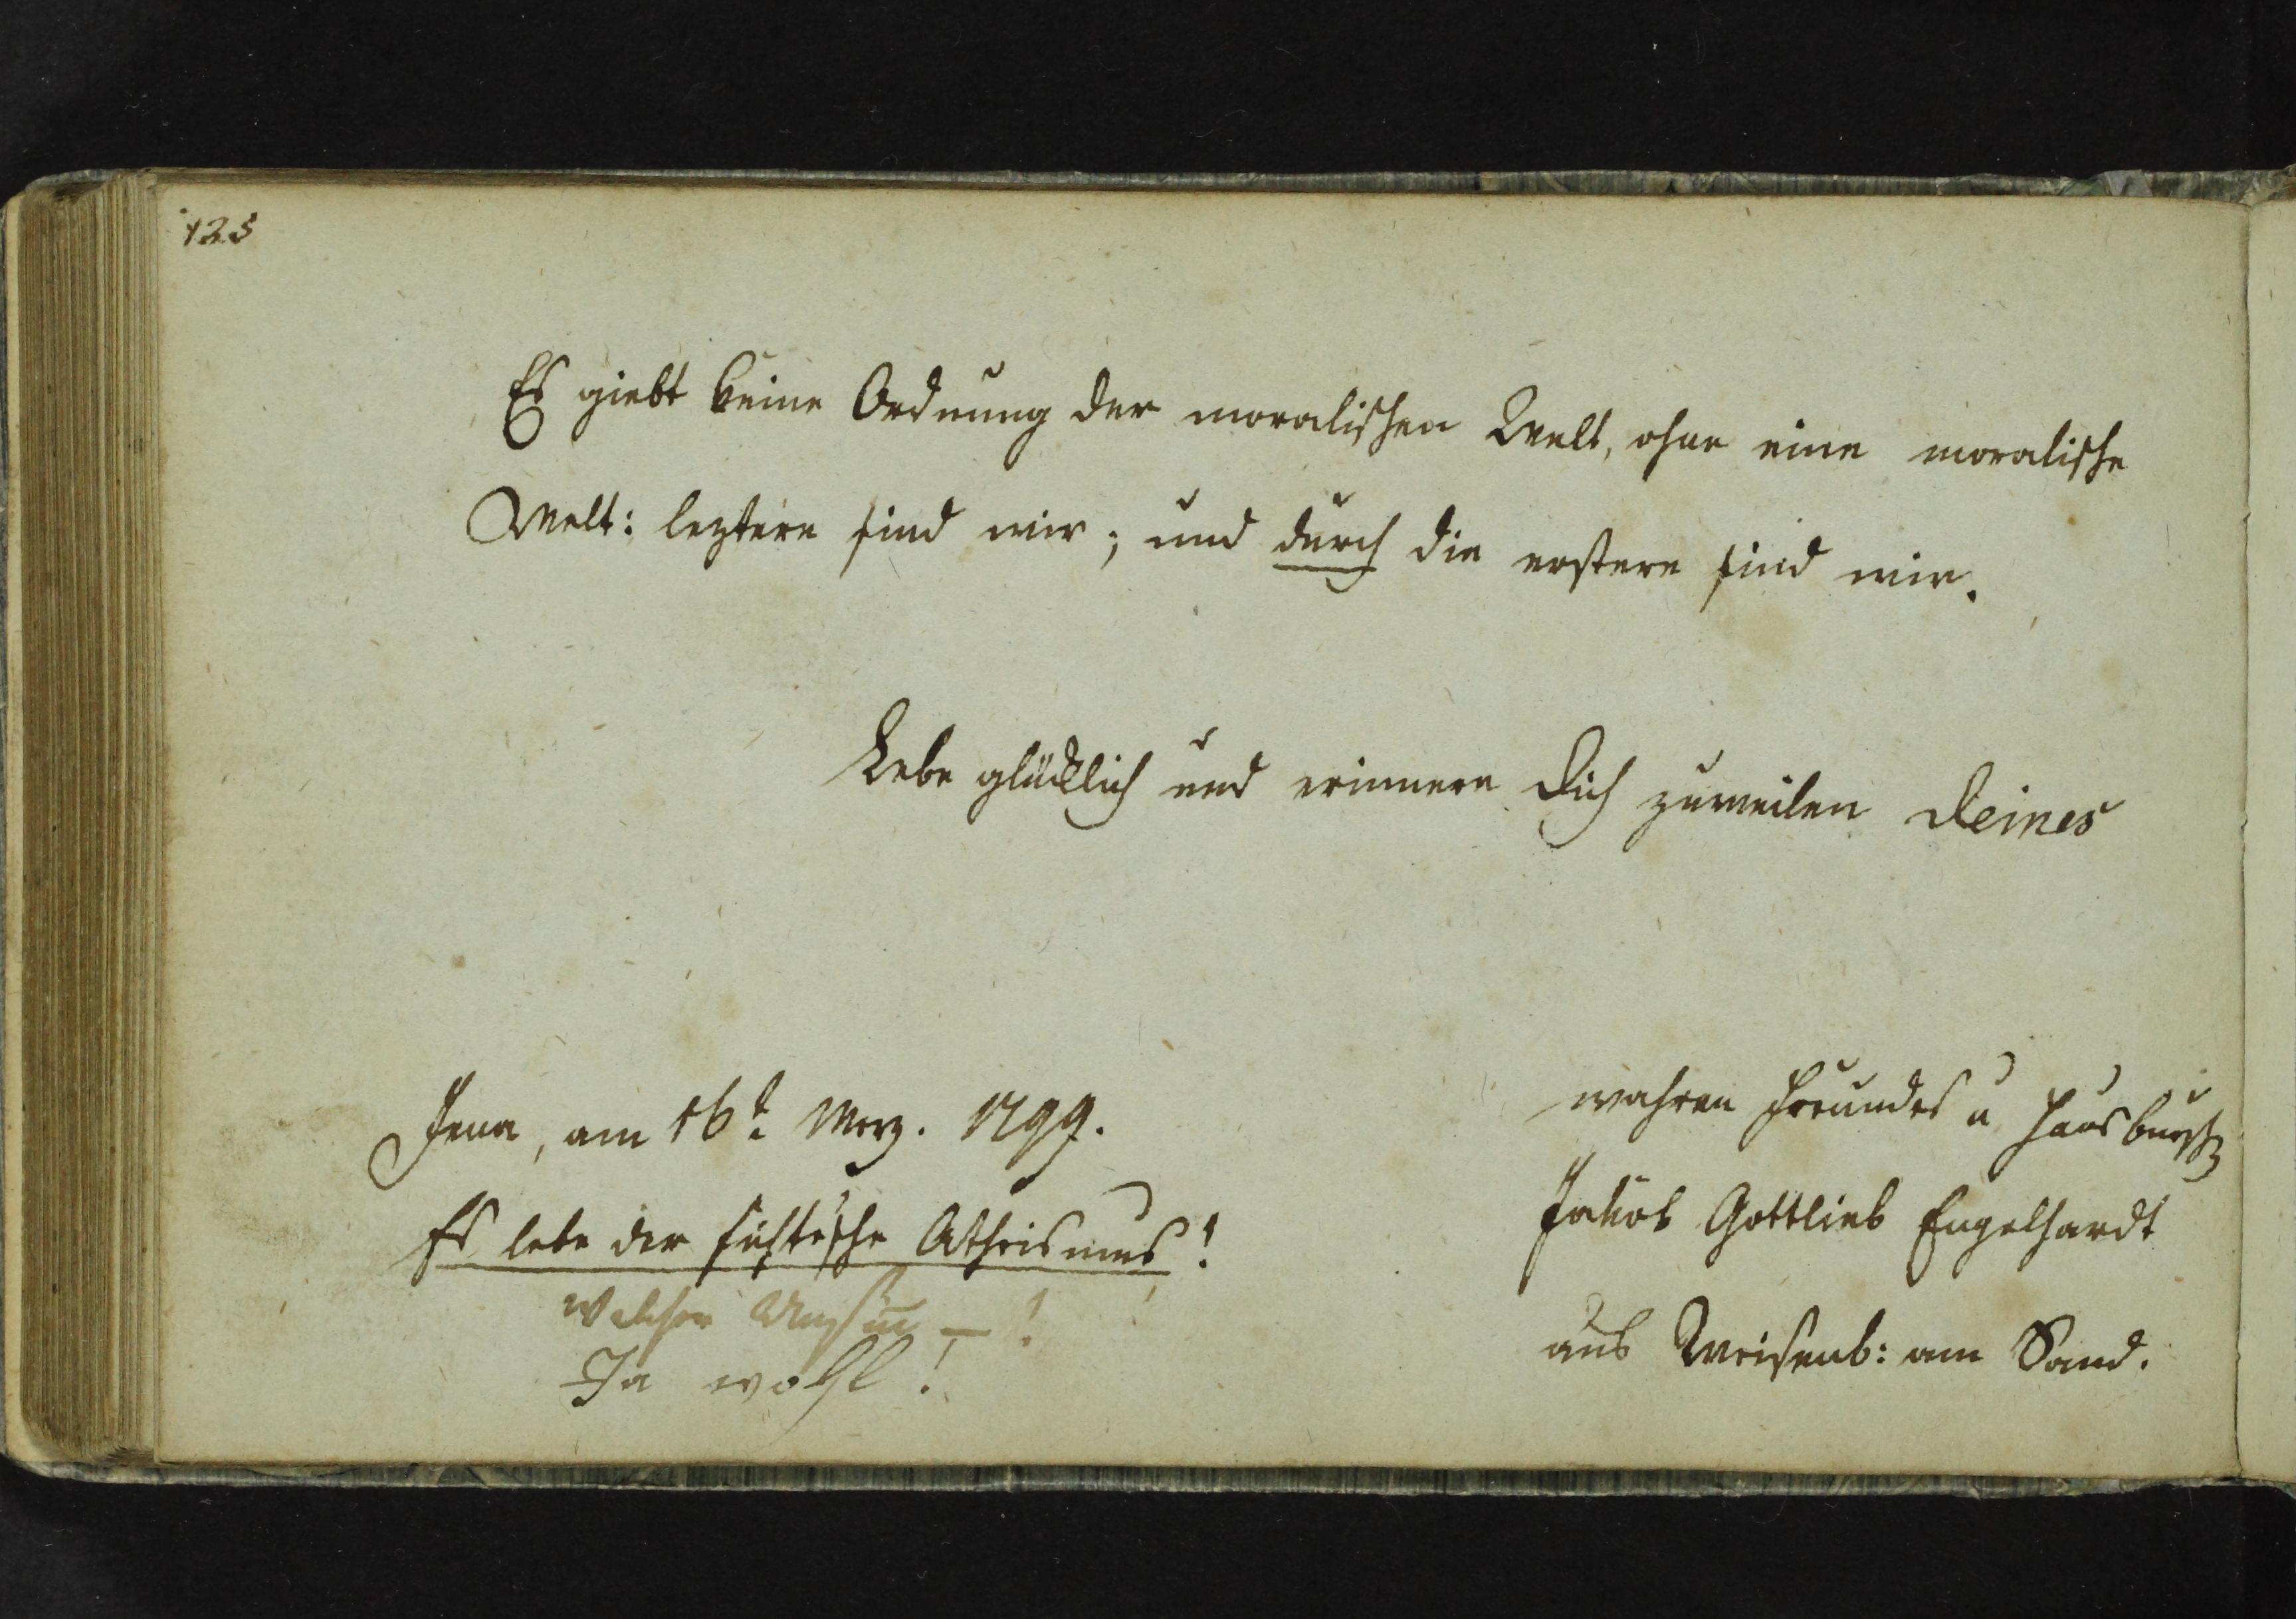 123
Es giebt keine Ordnung der moralischen Welt, ohne eine moralische
Welt: leztere sind wir; und durch die erstere sind wir.
Lebe glücklich und erinnere Dich zuweilen Deines
wahren Freundes u Hausbursch
Jena, am 16t Merz. 1799.
Jakob Gottlieb Engelhardt
Es lebe der fichtesche Atheismus!
aus Weisenb: am Sand.
Welcher Unsin̅ — !
Ja wohl!